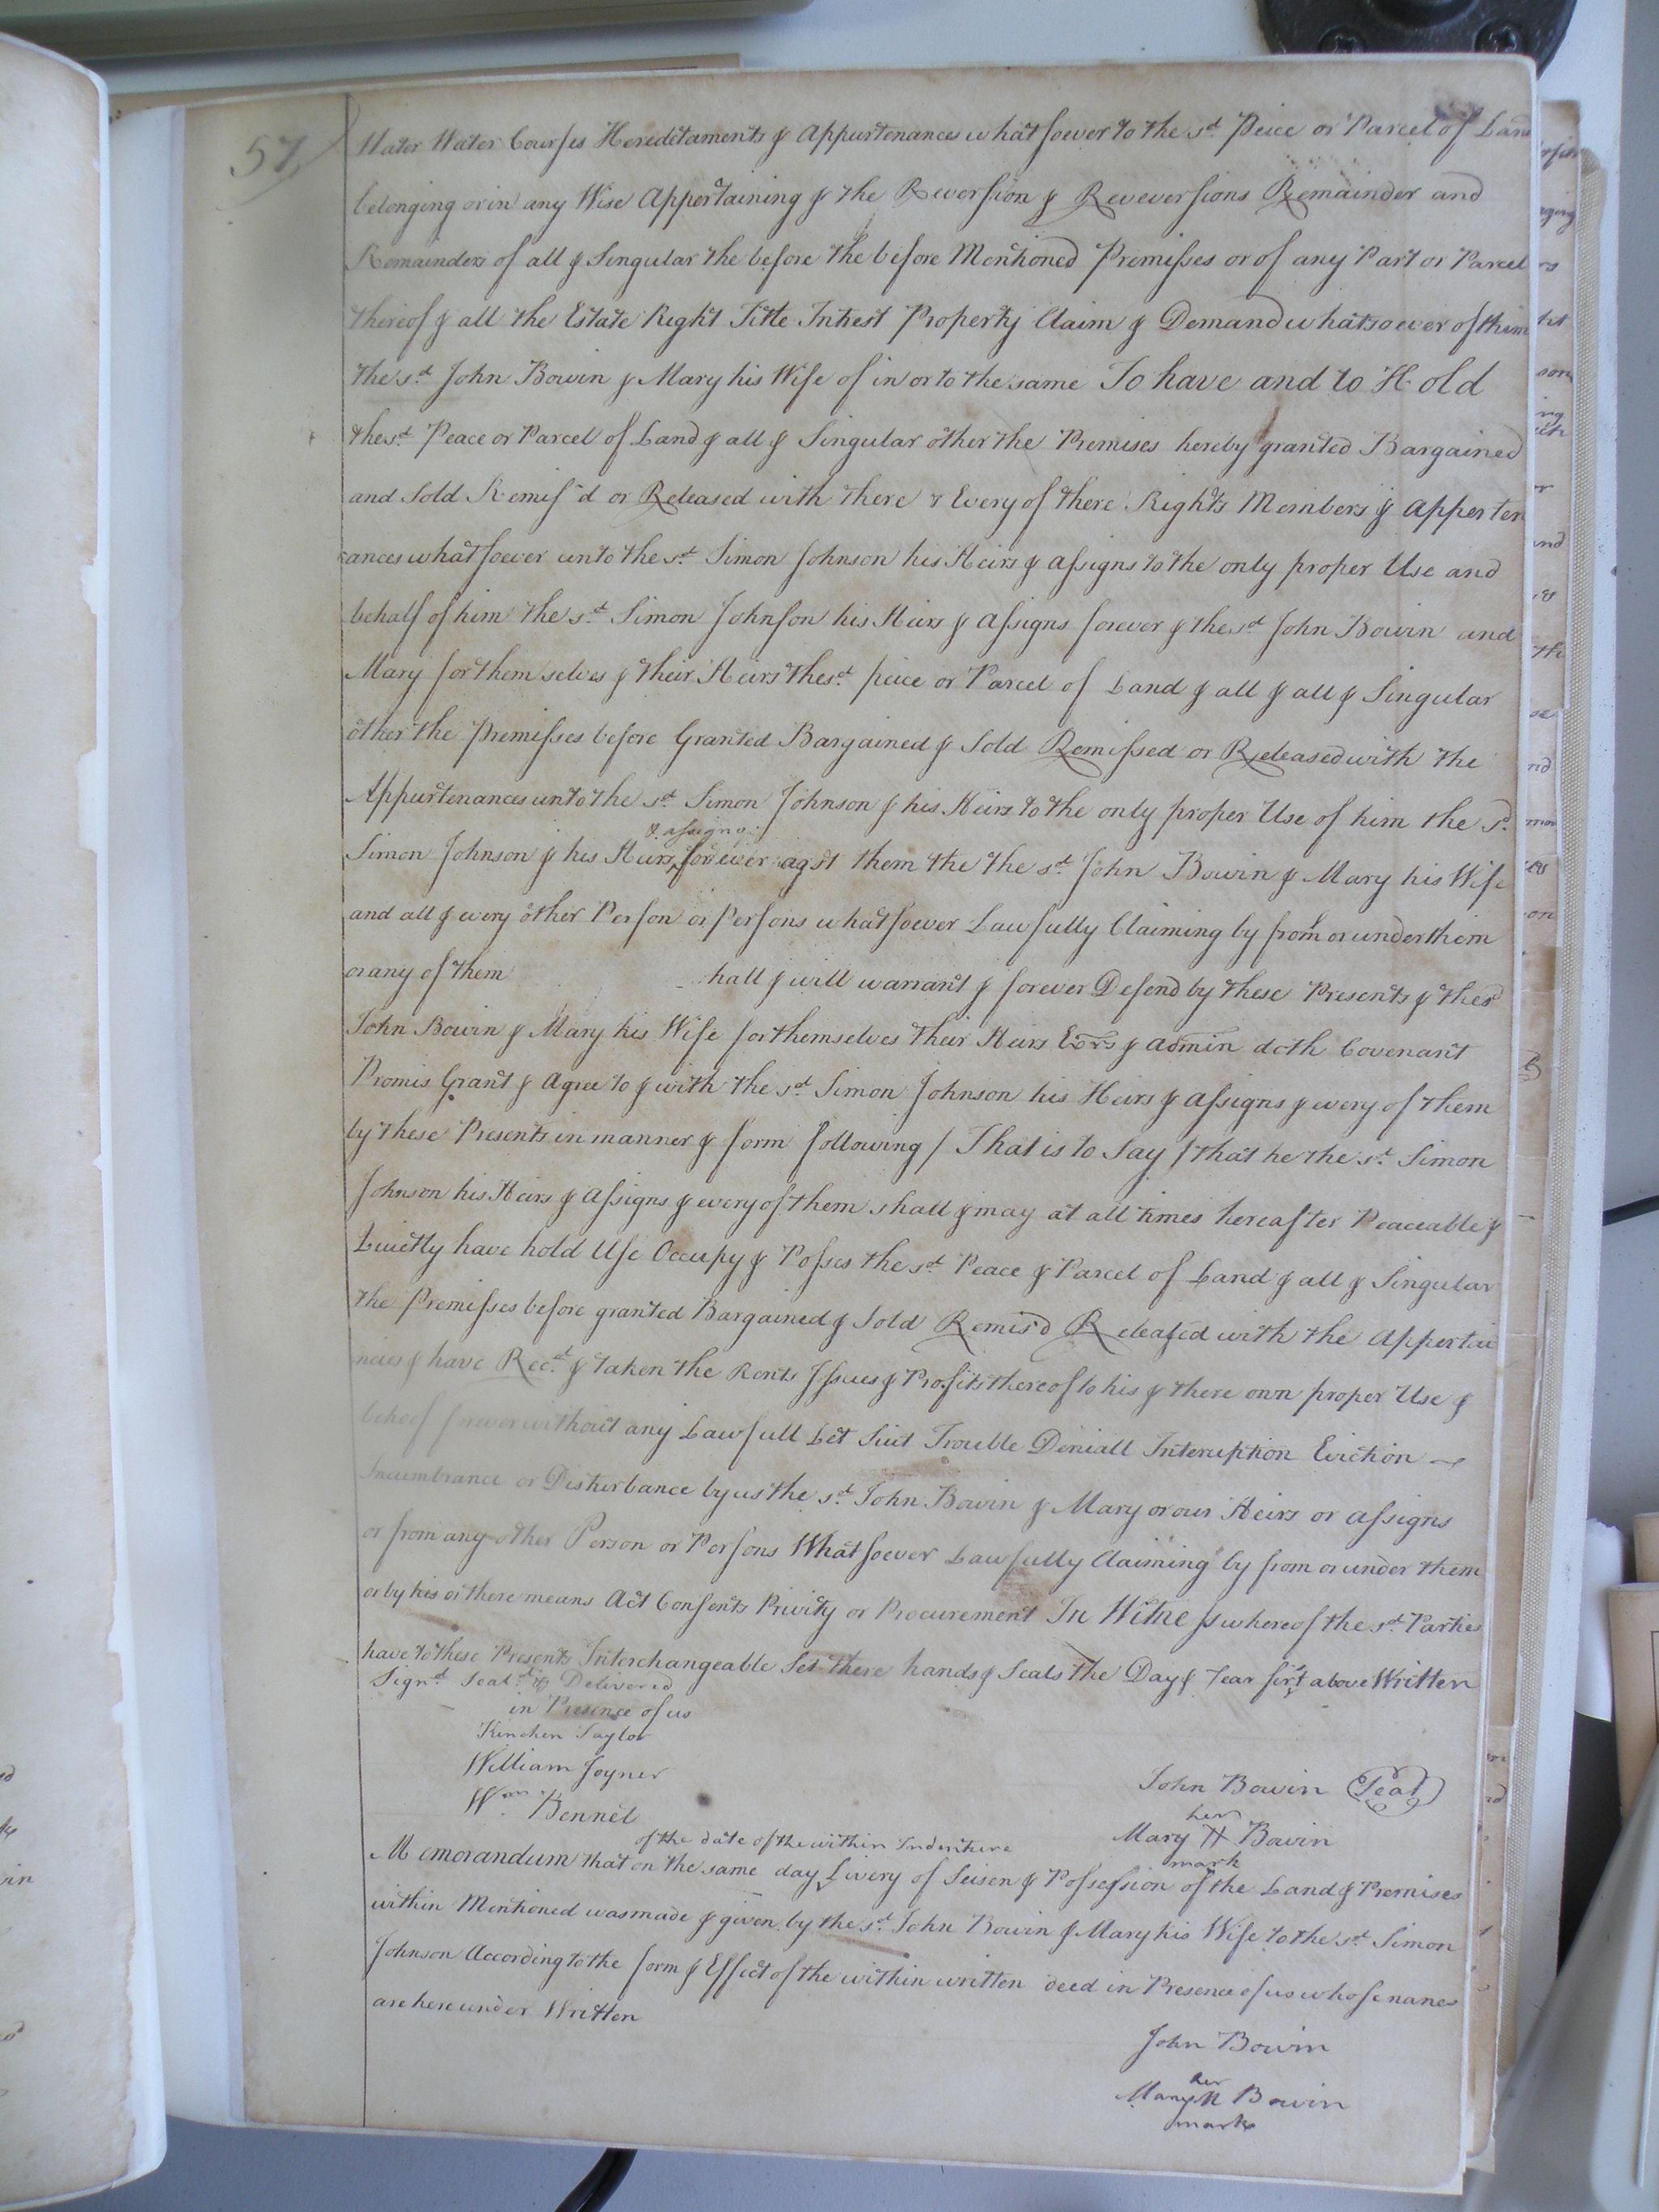 57
Water Water Courses Hereditaments & Appurtenances whatsoever to the sd. Peice or Parcel of Land
belonging or in any Wise Appertaining & the Reversion & Reveversions Remainder and
Remainders of all & Singular the before the before Mentioned Premisses or of any Part or Parcel
thereof & all the Estate Right Title Intrest Property Claim & Demand whatsoever of them
the sd. John Bowin & Mary his Wife of in or to the same To have and to Hold
the sd. Peace or Parcel of Land & all & Singular other the Premises hereby granted Bargained
and Sold Remis'd or Released with there & Every of there Rights Members & Apperten
ances whatsoever unto the sd. Simon Johnson his Heirs & assigns to the only proper Use and
behalf of him the sd. Simon Johnson his Heirs & assigns forever & the sd. John Bowin and
Mary for them selves & their Heirs the sd. peice or Parcel of Land & all & all & Singular
other the Premisses before Granted Bargained & Sold Remissed or Released with the
Appurtenances unto the sd. Simon Johnson & his Heirs to the only proper Use of him the sd.
Simon Johnson & his Heirs & assigns forever agst them the the sd. John Bowin & Mary his Wife
and all & every other Person or Persons whatsoever Lawfully Claiming by from or under them
or any of them hall & will warrant & forever Defend by these Presents & the sd
John Bowin & Mary his Wife for themselves their Heirs Exrs & admin doth Covenant
Promis Grant & Agree to & with the sd. Simon Johnson his Heirs & assigns & every of them
by these Presents in manner & form following / That is to Say / that he the sd. Simon
Johnson his Heirs & Assigns & every of them shall & may at all times hereafter Peaceable &
Quietly have hold Use Occupy & Posses the sd. Peace & Parcel of Land & all & Singular
the Premisses before granted Bargained & Sold Remis'd Released with the Appertai
neies & have Recd. & taken the Rents Issues & Profits thereof to his & there own proper Use &
behoof forever without any Lawfull Let Suit Trouble Deniall Interuption Eviction
Incumbrance or Disturbance by us the sd. John Bowin & Mary or our Heirs or assigns
or from any other Person or Persons Whatsoever Lawfully Claiming by from or under them
or by his or there means Act Consents Privity or Procurement In Witness whereof the sd. Parties
have to these Presents Interchangeable Set there hands & Seals the Day & Year first above Written
Signd. Seald. & Delivered
in Presence of us
Kinchen Taylor
William Joyner
Wm. Bennet
John Bowin Seal
her
Mary H Bowin
mark
of the date of the within Indenture
Memorandum that on the same day Livery of Seisen & Possession of the Land & Premises
within Mentioned was made & given by the sd. John Bowin & Mary his Wife to the sd. Simon
Johnson According to the form & Effect of the within written deed in Presence of us whose names
are here under Written
John Bowin
her
Mary H Bowin
mark